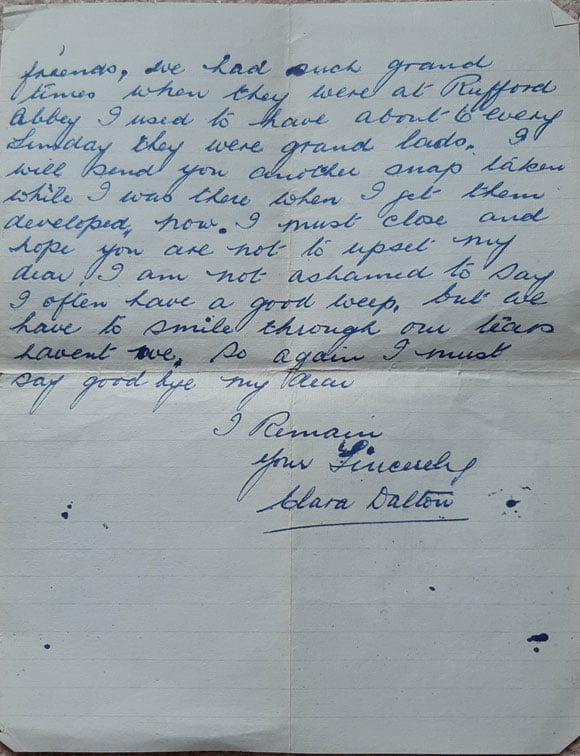 friends, we had such grand
times when they were at Rufford
Abbey I used to have about 6 every
Sunday they were grand lads. I
will send you another snap taken
while I was there when I get them
developed, now. I must close and
hope you are not to upset my
dear, I am not ashamed to say
I often have a good weep, but we
have to smile through our tears
havent we, so again I must
say good bye my dear
I Remain
Your Sincerely
Clara Dalton